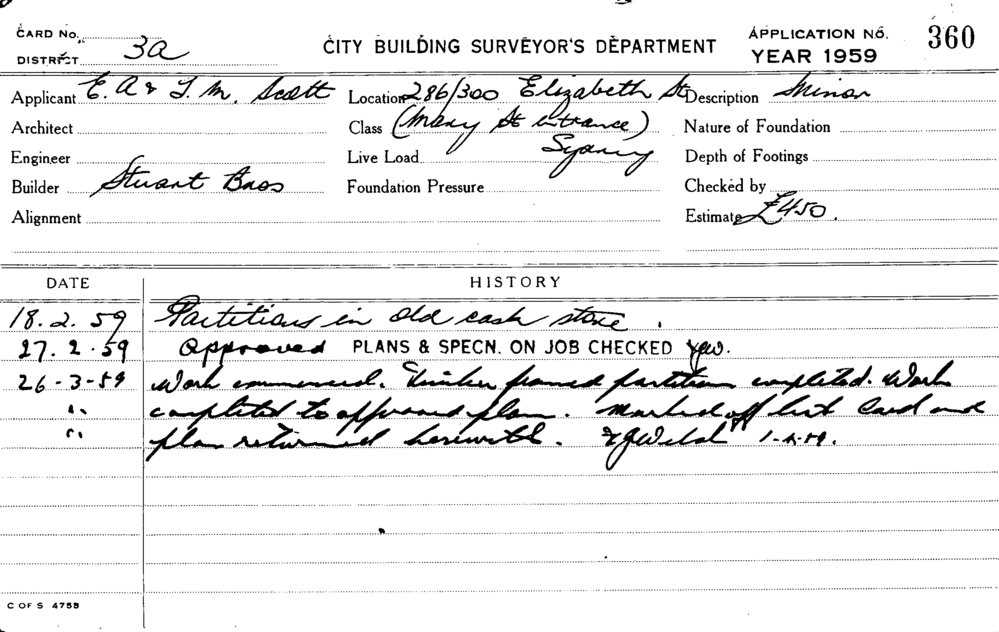 CARD No.
DISTRICT 3a
CITY BUILDING SURVEYOR'S DEPARTMENT
APPLICATION No. 360
YEAR 1959
Applicant E. A & T. M. Scott
Location 286/300 Elizabeth St
Description Minor
Architect
Class (Mary St entrance)
Nature of Foundation
Engineer
Live Load Sydney
Depth of Footings
Builder Stuart Bros
Foundation Pressure
Checked by
Alignment
Estimate £450.
DATE HISTORY
18.2.59 Partitions in old cash store.
27.2.59 Approved PLANS & SPECN. ON JOB CHECKED
26-3-59 Work commenced. Timber framed partitions completed. Work
" completed to approved plan. Marked off list Card and
" plan returned herewith. 1-4-59.
C OF S 475B